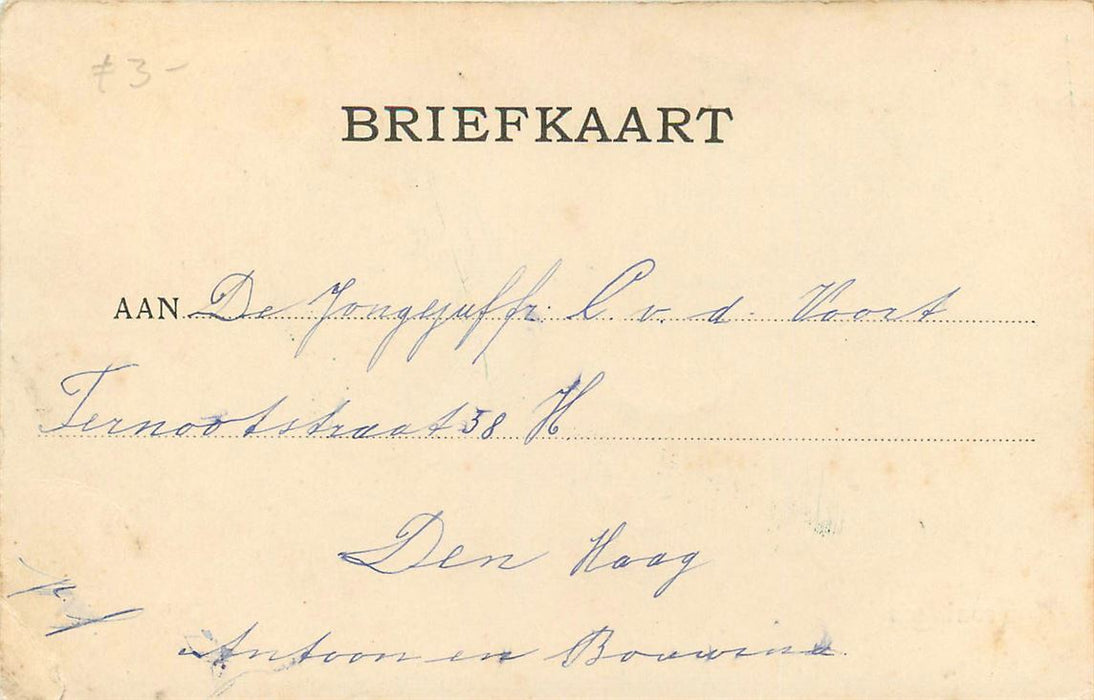 ƒ 3-
BRIEFKAART
AAN De Jongejuffr. C. v. d. Voort
Ternootstraat 58 H
Den Haag
Antoon en